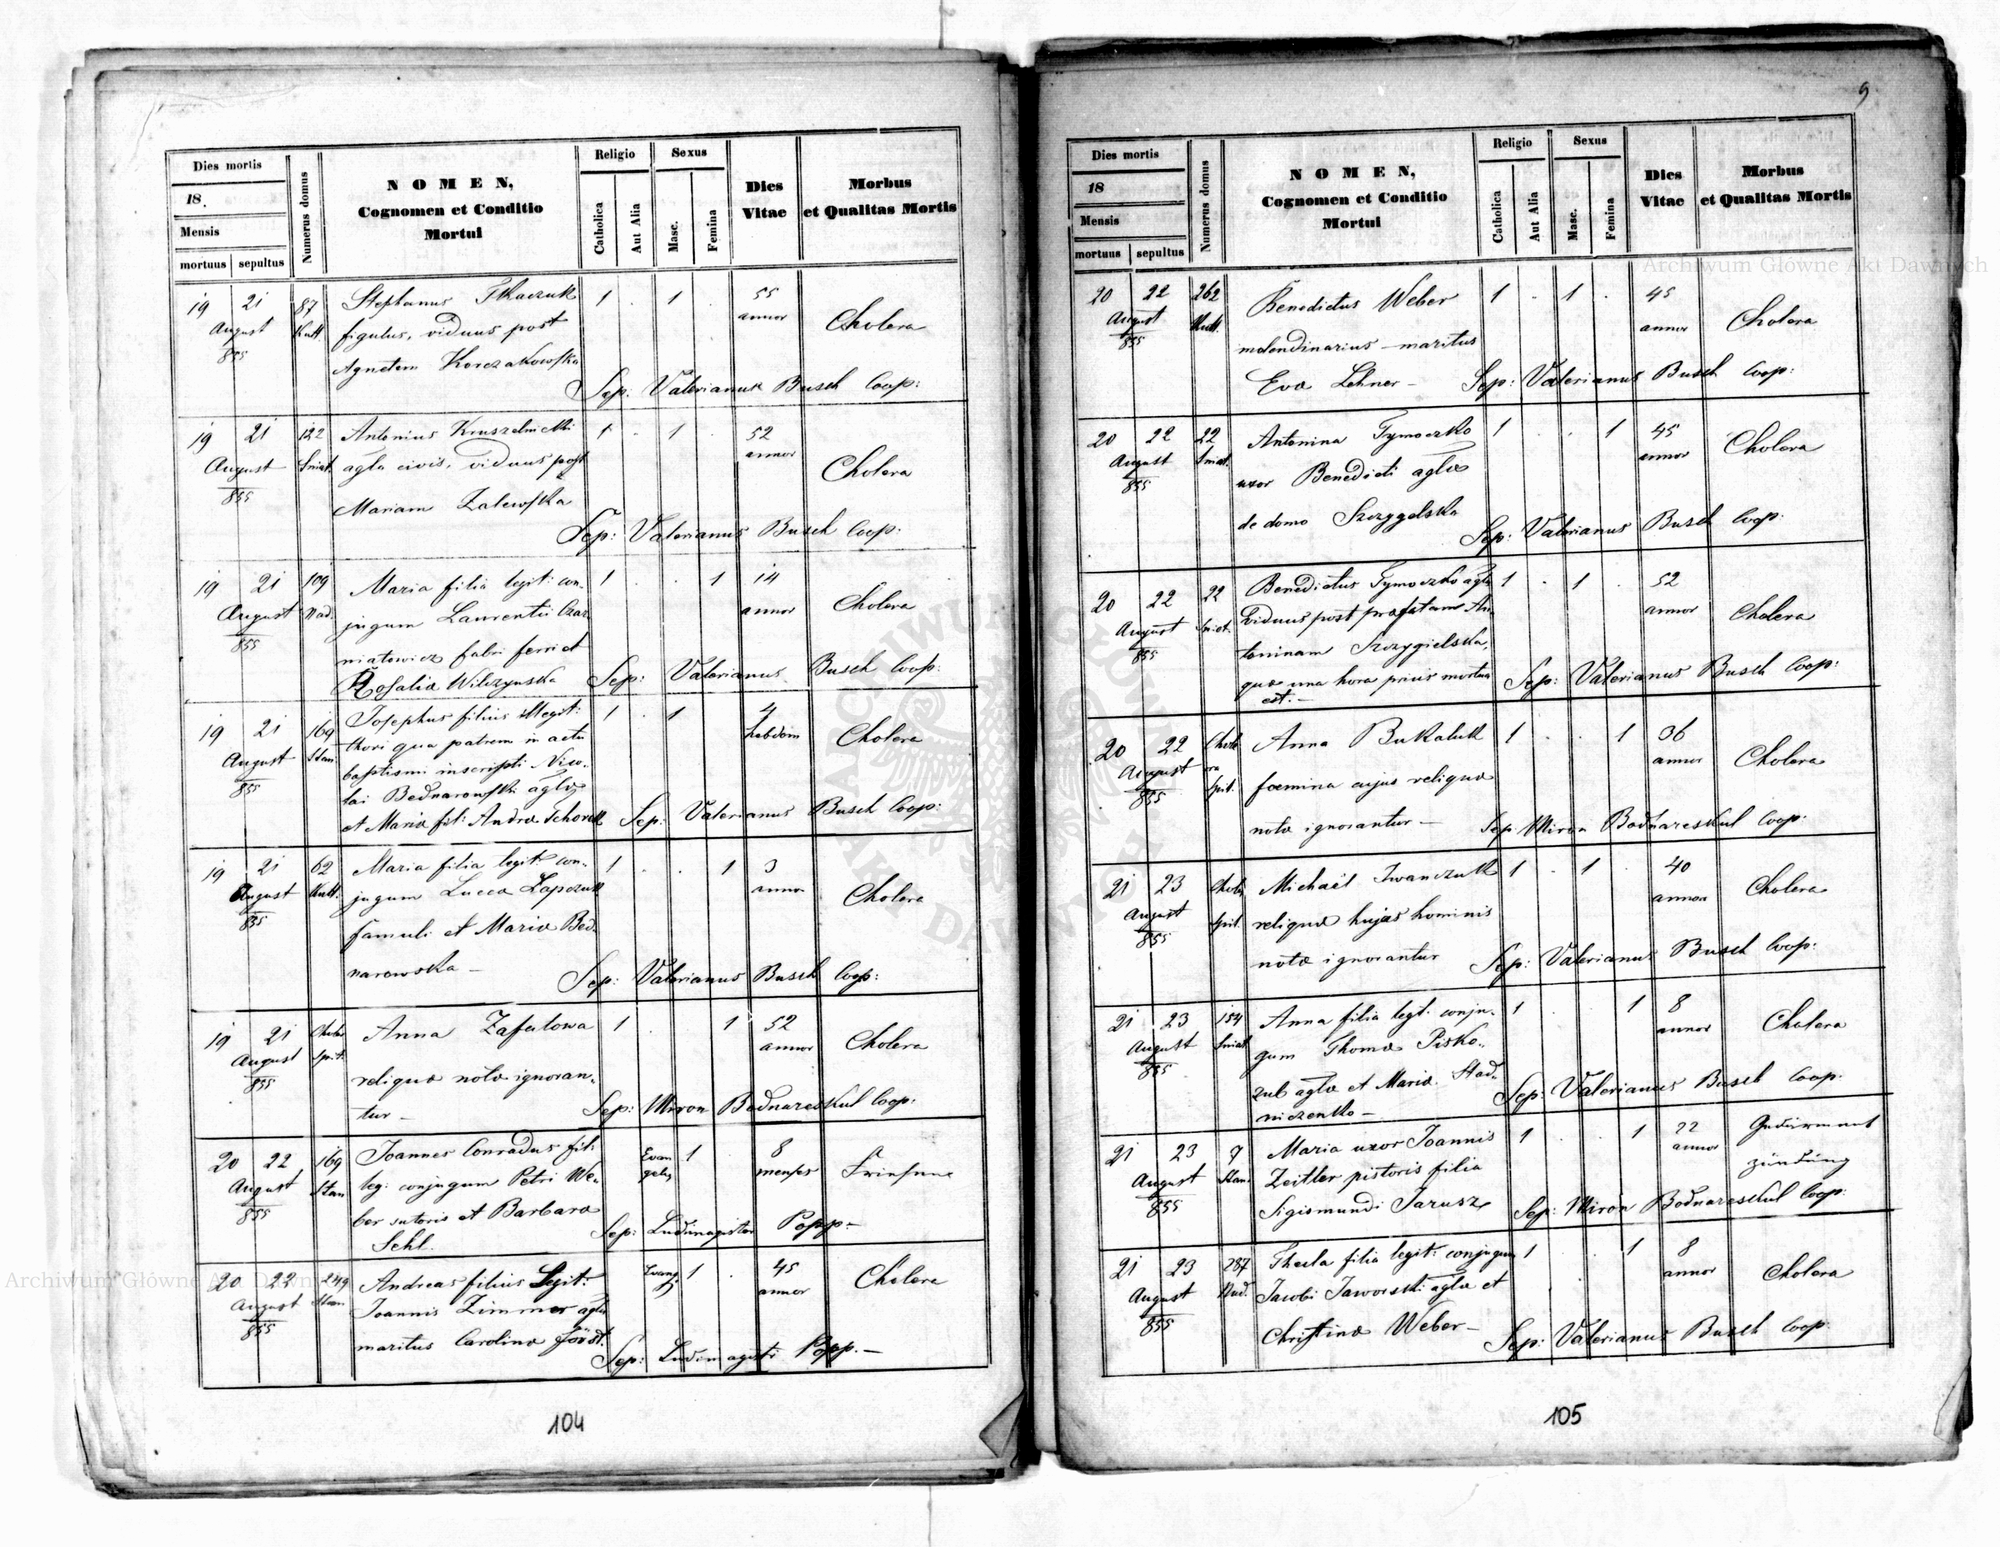 9
Dies mortis
18.
Mensis
mortuus sepultus
Numerus domus
NOMEN,
Cognomen et Conditio
Mortui
Religio
Catholica
Aut Alia
Sexus
Masc.
Femina
Dies
Vitae
Morbus
et Qualitas Mortis
19 21 87 Stephanus Tkaczuk 1 . 1 . 55
August Kutt. figulus, viduus post annor Cholera
855 Agnetem Korczakowska
Sep: Valerianus Busch Coop:
19 21 122 Antonius Kruszelnicki 1 . 1 . 52
August Sniat. agla civis, viduus post annor Cholera
855 Mariam Zalewska
Sep: Valerianus Busch Coop:
19 21 109 Maria filia legit: con- 1 . . 1 14
August Nad. jugum Laurentii Czar- annor Cholera
855 niatowicz fabri ferri et
Rosalia Wilczynska Sep: Valerianus Busch Coop:
19 21 169 Josephus filius illegit: 1 . 1 4
August Stan. thori qua patrem in actu hebdom Cholera
855 baptismi inscripti Nico-
lai Bednarowski agla
et Maria fil: Andrea Sep: Valerianus Busch Coop:
19 21 62 Maria filia legit: con- 1 . . 1 3
August Kutt. jugum Lucca Lapczuk annor Cholera
855 famuli et Maria Bed-
narowska –
Sep: Valerianus Busch Coop:
19 21 Anna 1 . 1 52
August Spit. reliqua nota ignoran- annor Cholera
855 tur –
Sep: Miron Bodnareskul Coop:
20 22 169 Joannes Conradus fil: Evan 1 . 8
August Stan leg: conjugum Petri We- gelic menses
855 ber sutoris et Barbara
Schl. Sep: Ludimagister Popp –
20 22 249 Andreas filius Legit: Evang. 1 . 45
August Stan. Joannis Zimmer agla annor Cholera
855 maritus Carolina
Sep: Ludimagistri Popp. –
104
Dies mortis
18
Mensis
mortuus sepultus
Numerus domus
NOMEN,
Cognomen et Conditio
Mortui
Religio
Catholica
Aut Alia
Sexus
Masc.
Femina
Dies
Vitae
Morbus
et Qualitas Mortis
20 22 262 Benedictus Weber 1 . 1 . 45
August Kutt. molendinarius – maritus annor Cholera
855 Eva Lehner –
Sep: Valerianus Busch Coop:
20 22 22 Antonina Tymoczko 1 . . 1 45
August Sniat. uxor Benedicti agla annor Cholera
855 de domo Szczygelska
Sep: Valerianus Busch Coop:
20 22 22 Benedictus Tymoczko agla 1 . 1 . 52
August Sniat. Viduus post prafatam An- annor Cholera
855 toninam Szczygielska,
qua una hora prius mortua
est. – Sep: Valerianus Busch Coop:
20 22 Chole Anna Bukaluk 1 . . 1 36
August ra foemina cujus reliqua annor Cholera
855 Spit. nota ignorantur –
Sep: Miron Bodnareskul Coop:
21 23 Chole Michaël Iwanczuk 1 . 1 . 40
August Spit. reliqua hujus hominis annor Cholera
855 nota ignorantur
Sep: Valerianus Busch Coop:
21 23 154 Anna filia legt. conju- 1 . . 1 8
August Sniat. gum Thoma Pisko- annor Cholera
855 zub agla et Maria Stad-
niczenko –
Sep: Valerianus Busch Coop:
21 23 7 Maria uxor Joannis 1 . . 1 22 Gedärment
August Stan. Zeitler pistoris filia annor zündung
855 Sigismundi Jarusz
Sep: Miron Bodnareskul Coop:
21 23 287 Thecla filia legit: conjugum 1 . . 1 8
August Nad. Jacobi Jaworski agla et annor Cholera
855 Christina Weber –
Sep: Valerianus Busch Coop:
105
Archiwum Główne Akt Dawnych
ARCHIWUM GŁÓWNE
AKT DAWNYCH
Archiwum Główne Akt Dawnych